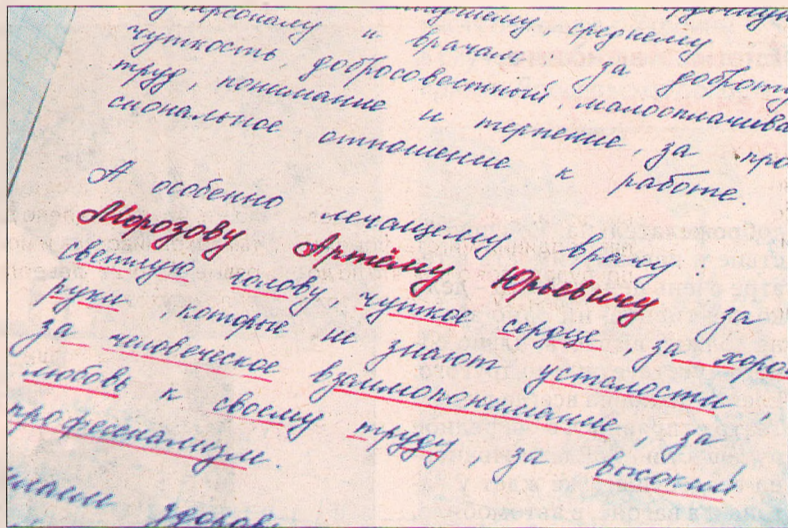 персоналу и врачам за доброту
чуткость, добросовестный, малооплачива
труд, понимание и терпение, за про
сиональное отношение к работе.
А особенно лечащему врачу:
Морозову Артёму Юрьевичу за
светлую голову, чуткое сердце, за хоро
руки, которые не знают усталости,
за человеческое взаимопонимание, за
любовь к своему труду, за высокий
профессионализм.
здоров